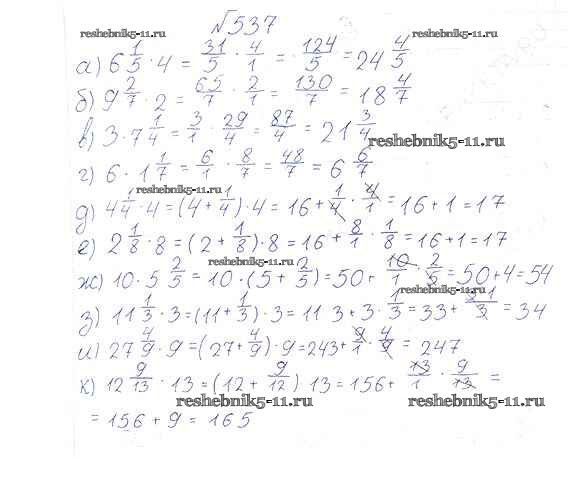 №537
reshebnik5-11.ru reshebnik5-11.ru
а) 6 1/5 · 4 = 31/5 · 4/1 = 124/5 = 24 4/5
б) 9 2/7 · 2 = 65/7 · 2/1 = 130/7 = 18 4/7
в) 3 · 7 1/4 = 3/1 · 29/4 = 87/4 = 21 3/4
reshebnik5-11.ru
г) 6 · 1 1/7 = 6/1 · 8/7 = 48/7 = 6 6/7
reshebnik5-11.ru
д) 4 1/4 · 4 = (4 + 1/4) · 4 = 16 + 1/4 · 4/1 = 16 + 1 = 17
е) 2 1/8 · 8 = (2 + 1/8) · 8 = 16 + 8/1 · 1/8 = 16 + 1 = 17
reshebnik5-11.ru
ж) 10 · 5 2/5 = 10 · (5 + 2/5) = 50 + 10/1 · 2/5 = 50 + 4 = 54
reshebnik5-11.ru
з) 11 1/3 · 3 = (11 + 1/3) · 3 = 11 3 + 3 · 1/3 = 33 + 3 1/3 = 34
и) 27 4/9 · 9 = (27 + 4/9) · 9 = 243 + 9/1 · 4/9 = 247
к) 12 9/13 · 13 = (12 + 9/12) 13 = 156 + 13/1 · 9/13 =
reshebnik5-11.ru reshebnik5-11.ru
= 156 + 9 = 165